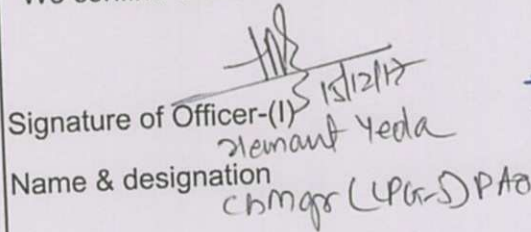 15/12/17
Signature of Officer-(I)
Hemant Yeda
Name & designation
Ch Mgr (LPG-S) PAO